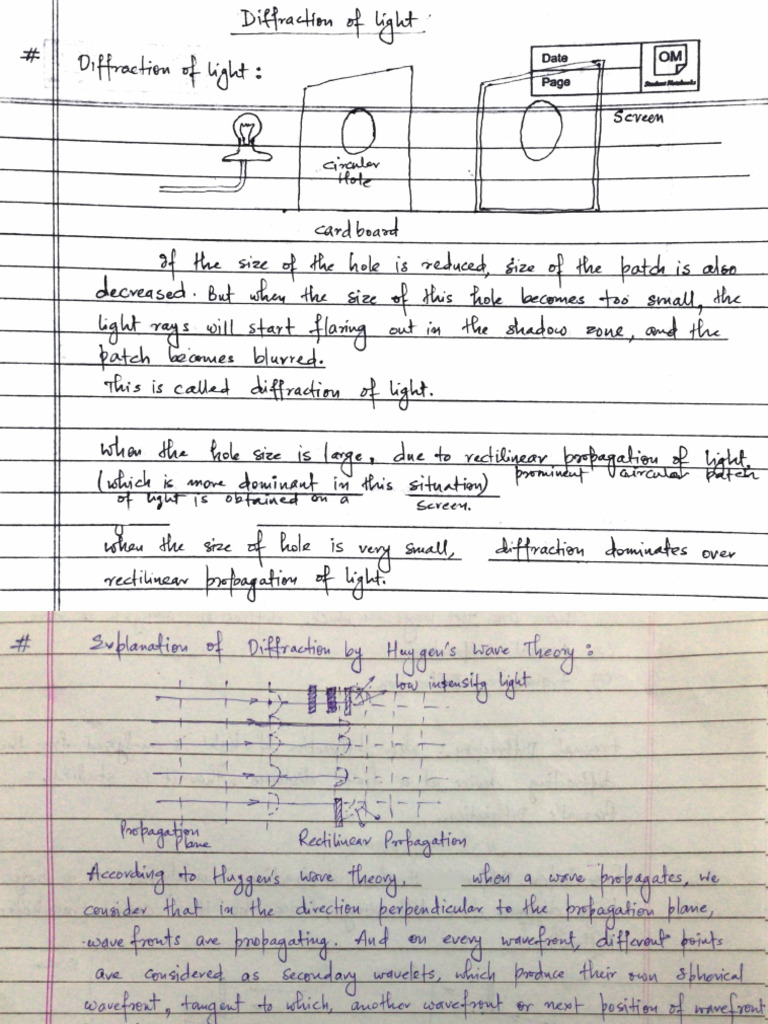 Diffraction of light
# Diffraction of light :
Date
Page
OM
Student Notebooks
Screen
Circular
Hole
cardboard
If the size of the hole is reduced, size of the patch is also
decreased. But when the size of this hole becomes too small, the
light rays will start flaring out in the shadow zone, and the
patch becomes blurred.
This is called diffraction of light.
When the hole size is large, due to rectilinear propagation of light.
(which is more dominant in this situation) prominent circular patch
of light is obtained on a screen.
when the size of hole is very small, diffraction dominates over
rectilinear propagation of light.
# Explanation of Diffraction by Huygen's Wave Theory :
low intensity light
Propagation
Plane
Rectilinear Propagation
According to Huygen's wave theory, when a wave propagates, we
consider that in the direction perpendicular to the propagation plane,
wave fronts are propagating. And on every wavefront, different points
are considered as secondary wavelets, which produce their own spherical
wavefront, tangent to which, another wavefront or next position of wavefront